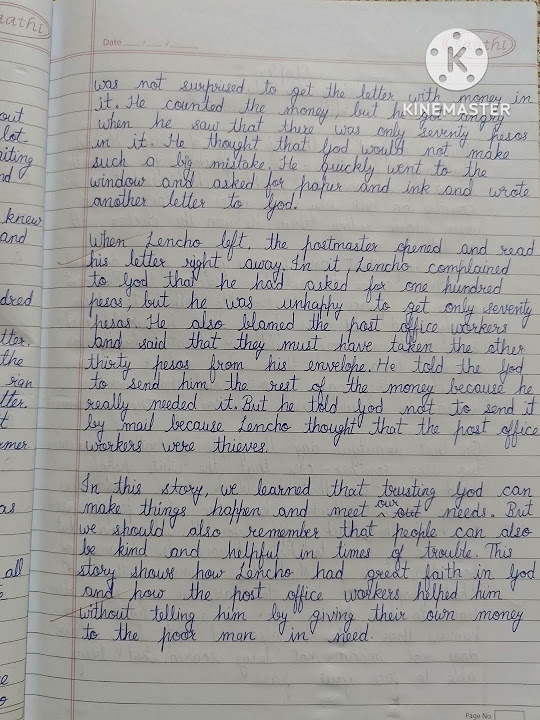 aathi
Date / /
athi
K
KINEMASTER
was not surprised to get the letter with money in
it. He counted the money, but he got angry
when he saw that there was only seventy pesos
in it. He thought that God would not make
such a big mistake. He quickly went to the
window and asked for paper and ink and wrote
another letter to God.
When Lencho left, the postmaster opened and read
his letter right away. In it, Lencho complained
to God that he had asked for one hundred
pesos, but he was unhappy to get only seventy
pesos. He also blamed the post office workers
and said that they must have taken the other
thirty pesos from his envelope. He told the God
to send him the rest of the money because he
really needed it. But he told God not to send it
by mail because Lencho thought that the post office
workers were thieves.
In this story, we learned that trusting God can
make things happen and meet our needs. But
we should also remember that people can also
be kind and helpful in times of trouble. This
story shows how Lencho had great faith in God
and how the post office workers helped him
without telling him by giving their own money
to the poor man in need.
Page No.
out
lot
iting
nd
knew
and
dred
tter.
the
ran
tter.
t
rmer
as
all
e
e
o